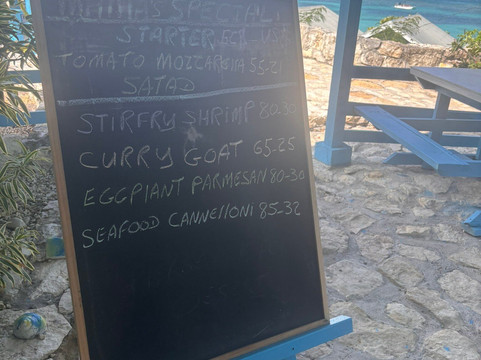 MAMA'S SPECIAL
STARTER ECD USD
TOMATO MOZZARELLA 55-21
SALAD
STIRFRY SHRIMP 80-30
CURRY GOAT 65-25
EGGPLANT PARMESAN 80-30
SEAFOOD CANNELLONI 85-32